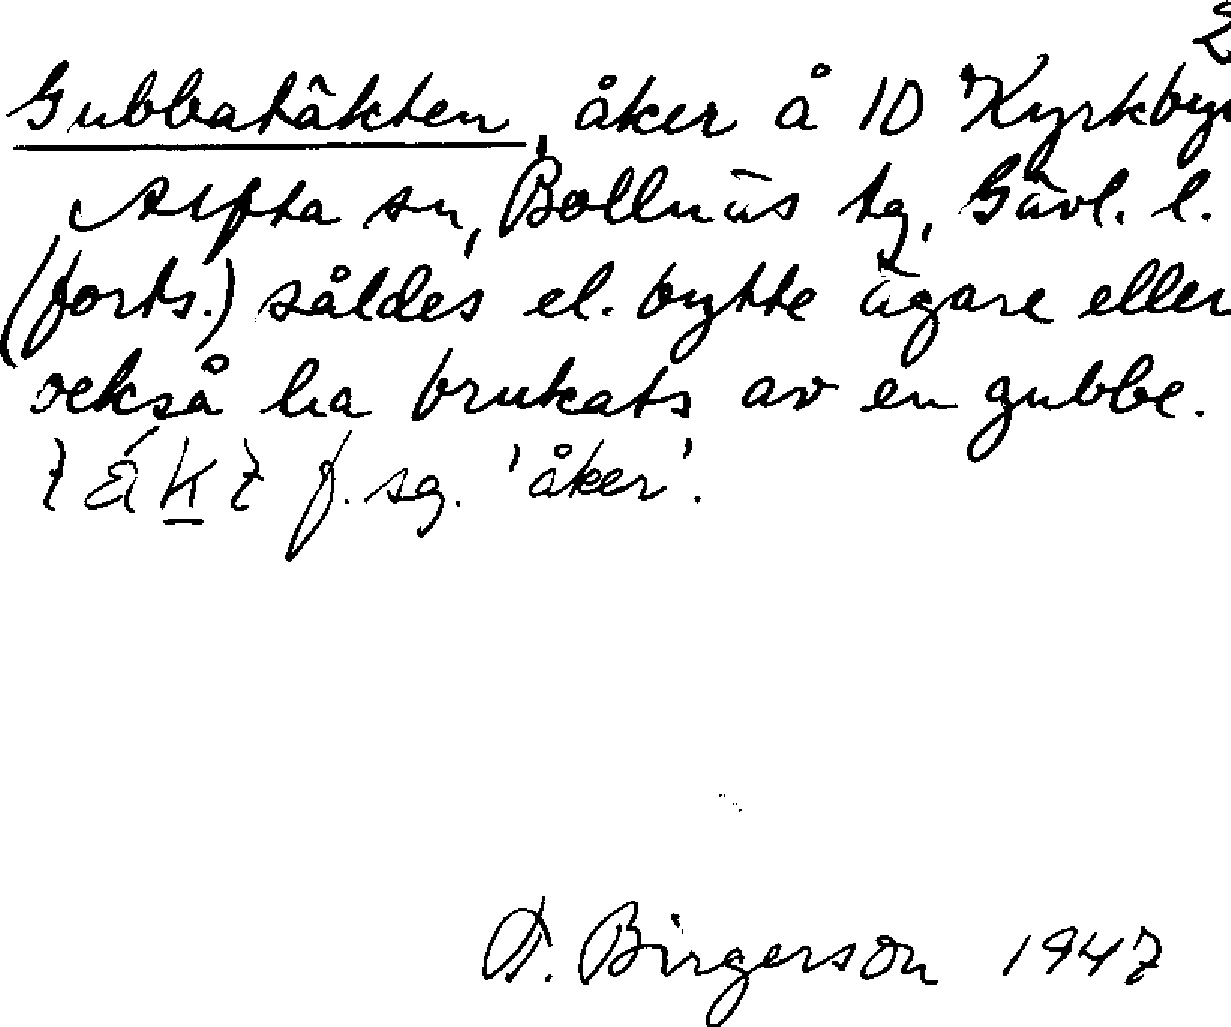 2
Gubbatäkten, åker å 10 Kyrkbyn
Alfta sn, Bollnäs tg, Gävl. l.
(forts.) såldes el. bytte ägare eller
också ha brukats av en gubbe.
f. sg. 'åker'.
A. Birgerson 1947